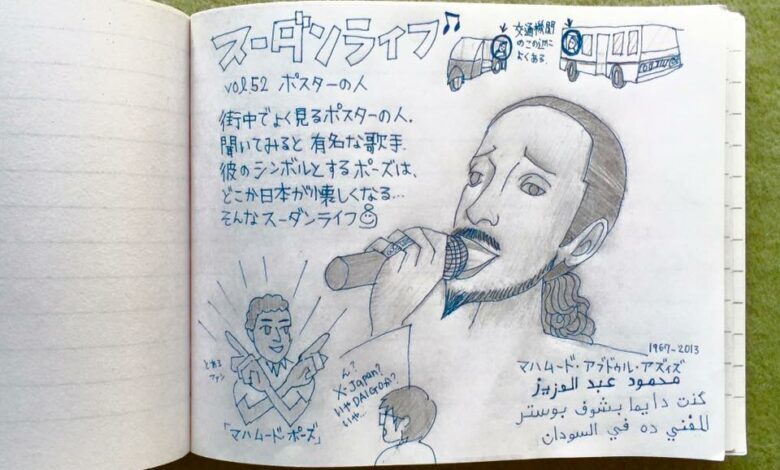 スーダンライフ♪
vol.52 ポスターの人
交通機関
のこの辺に
よくある.
街中でよく見るポスターの人.
聞いてみると 有名な歌手.
彼のシンボルとするポーズは、
どこか日本が懐しくなる…
そんなスーダンライフ
とある
ファン
「マハムード・ポーズ」
ん?
X-Japan?
いやDAIGOか?
いや…
1967-2013
マハムード・アブドゥル・アズィズ
محمود عبد العزيز
كنت دايما بشوف بوستر
للمُغني ده في السودان